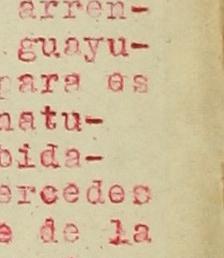 arren-
guayu-
para es
natu-
bida-
ercedes
e de la